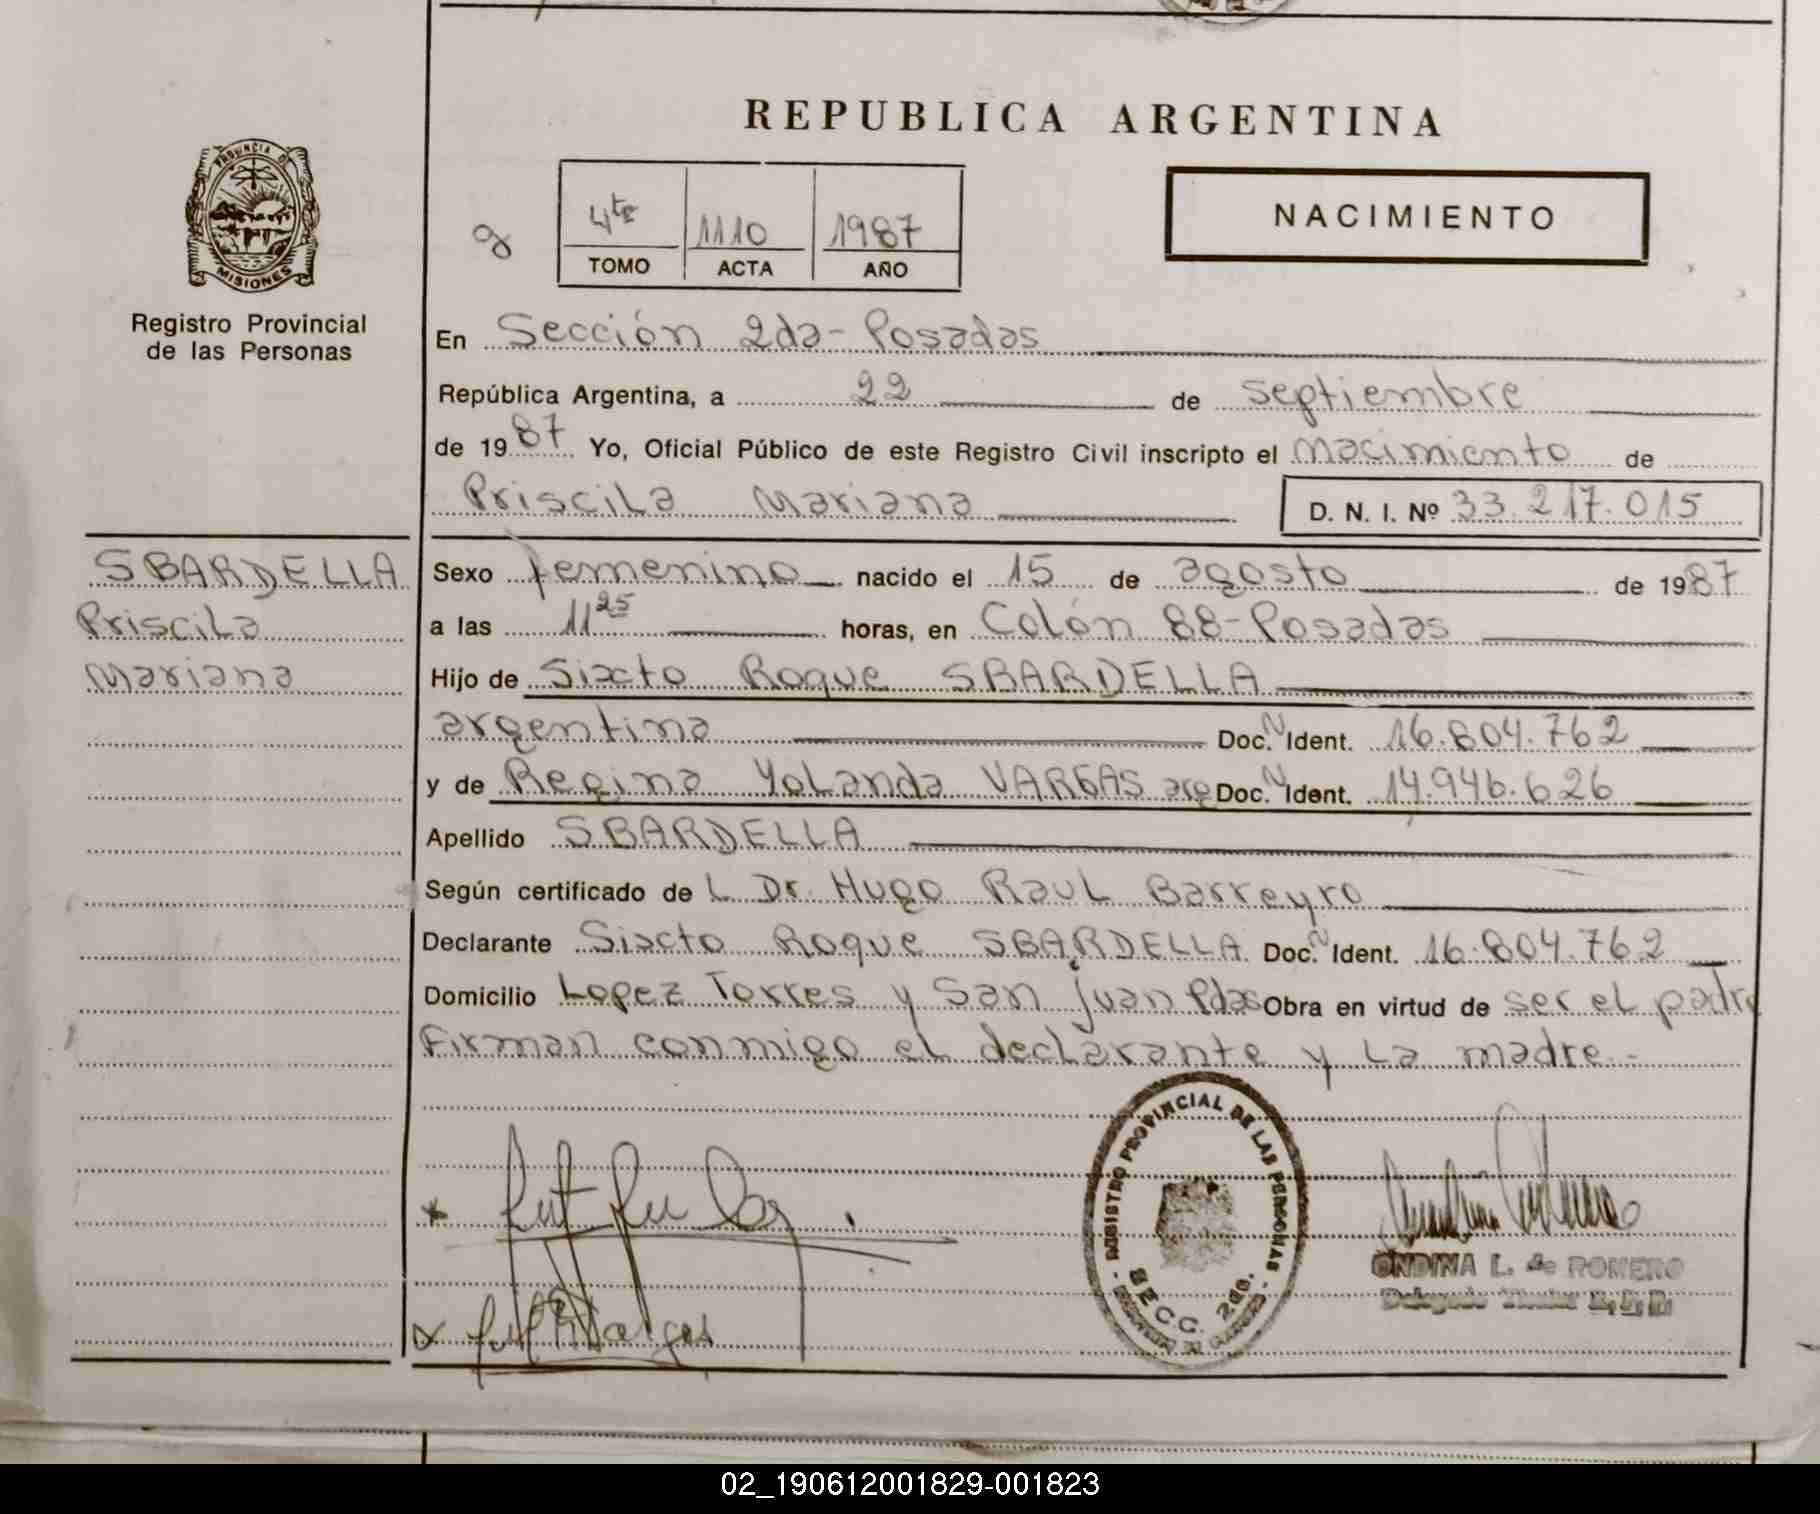 REPUBLICA ARGENTINA
PROVINCIA DE
MISIONES
Registro Provincial
de las Personas
4to 1110 1987
TOMO ACTA AÑO
NACIMIENTO
En Sección 2da-Posadas
República Argentina, a 22 de septiembre
de 1987 Yo, Oficial Público de este Registro Civil inscripto el nacimiento de
Priscila Mariana D. N. I. Nº 33.217.015
SBARDELLA
Priscila
Mariana
Sexo femenino nacido el 15 de agosto de 1987
a las 11 25 horas, en Colón 88-Posadas
Hijo de Sixto Roque SBARDELLA
argentina Doc. N Ident. 16.804.762
y de Regina Yolanda VARGAS arg Doc. N Ident. 14.946.626
Apellido SBARDELLA
Según certificado de L Dr. Hugo Raul Barreyro
Declarante Sixto Roque SBARDELLA Doc. N Ident. 16.804.762
Domicilio Lopez Torres y San Juan Pdas Obra en virtud de ser el padre
Firman conmigo el declarante y la madre.-
REGISTRO PROVINCIAL DE LAS PERSONAS
SECC. 2da.
ONDINA L. de ROMERO
02_190612001829-001823